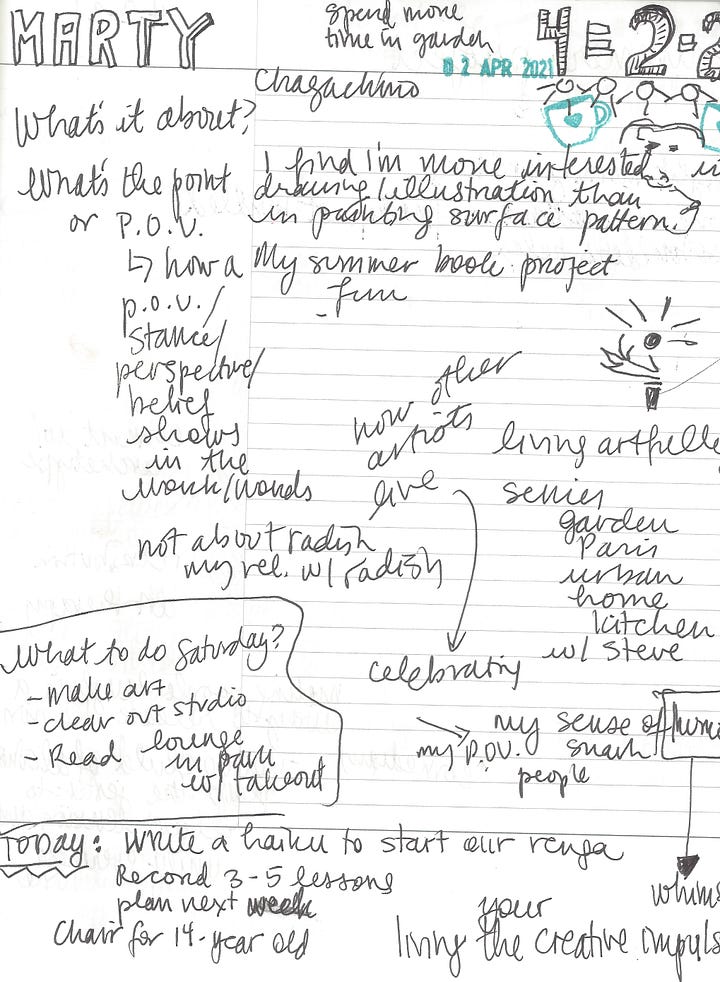 MARTY
spend more
time in garden
02 APR 2021
4=2-2
What's it about?
What's the point
or P.O.V.
↳ how a
p.o.v./
stance/
perspective/
belief
shows
in the
work/words
not about radish
my rel. w/ radish
I find i'm more interested
drawing/illustration than
in painting surface pattern.
My summer book project
- fun
how other
artists
live
celebrating
series
garden
Paris
urban
home
kitchen
w/ Steve
my sense of
my P.O.V.
people
What to do Saturday?
- make art
- clear out studio
- Read lounge
in park
w/ takeout
Today: Write a haiku to start our renga
Record 3-5 lessons
plan next week
Chair for 14-year old
your
living the creative impuls